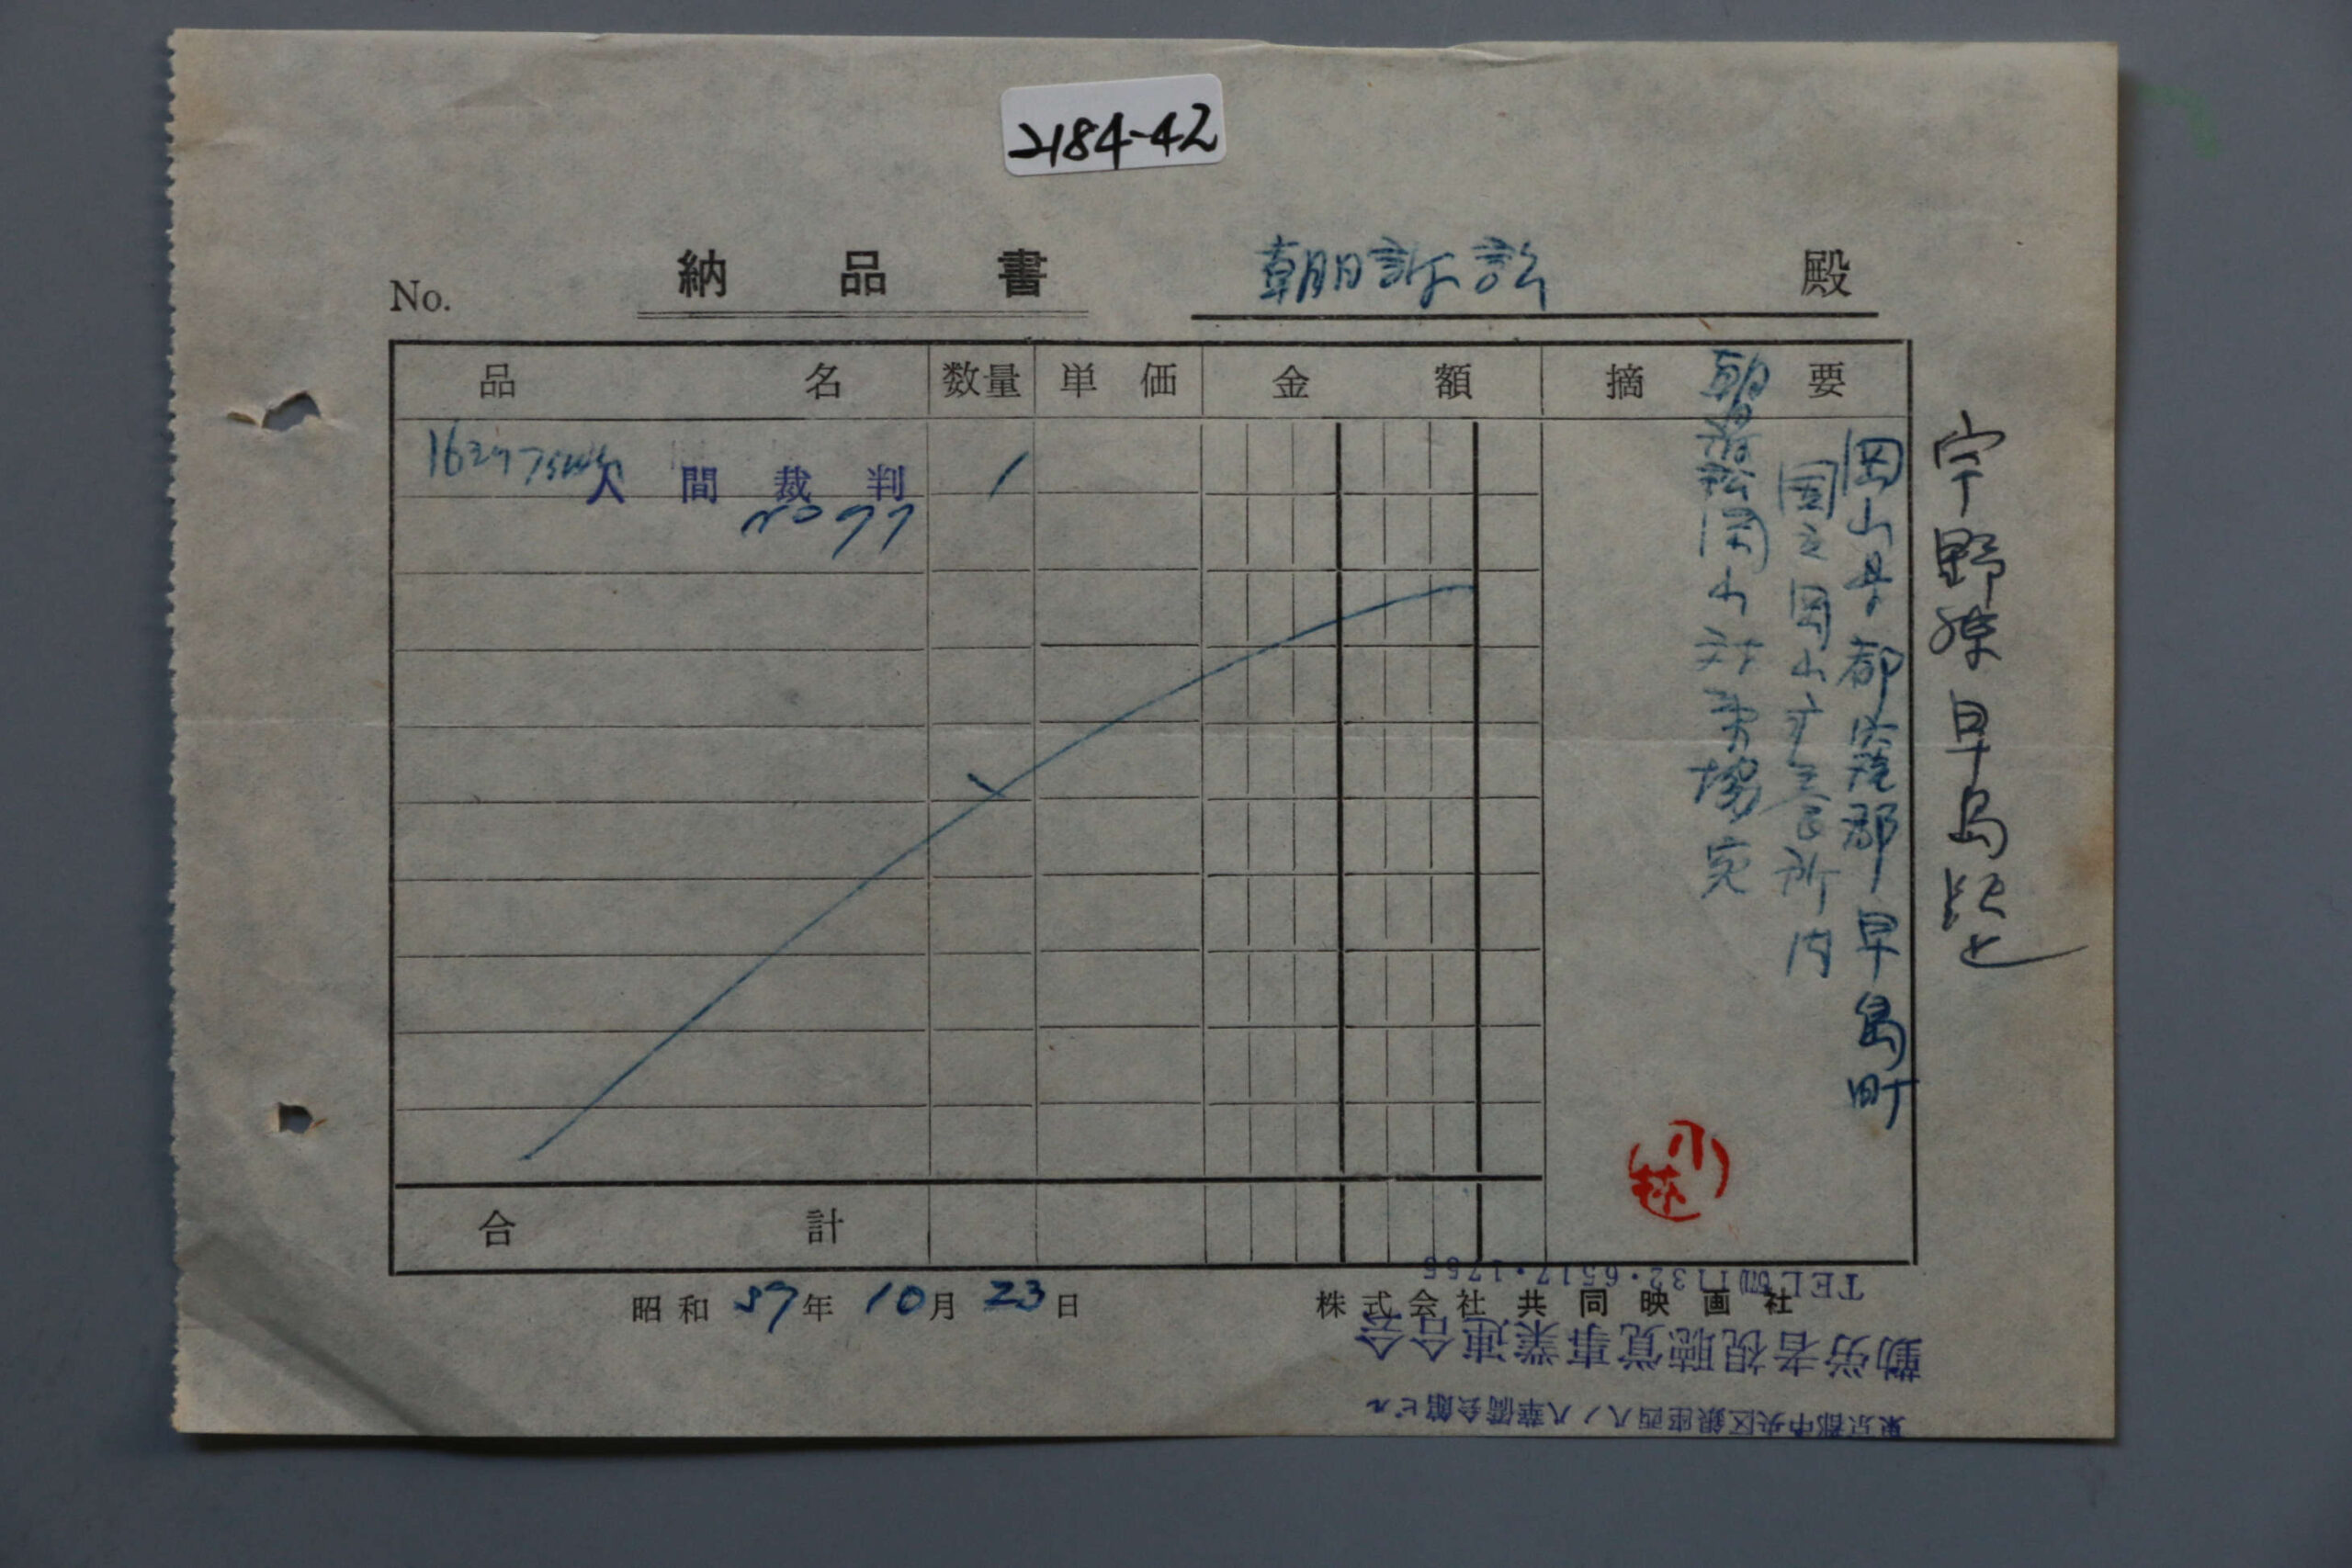 2184-42
No.
納品書
朝日訴訟 殿
品名 数量 単価 金額 摘要
16ミリ
人間裁判 1
no 77
宇野線 早島駅止
岡山県都窪郡早島町
国立岡山療養所内
朝日訴訟岡山対策協宛
小林
合計
昭和37年10月23日
株式会社共同映画社
TEL
勤労者視聴覚事業連合会
東京都中央区銀座西八ノ八華僑会館ビル